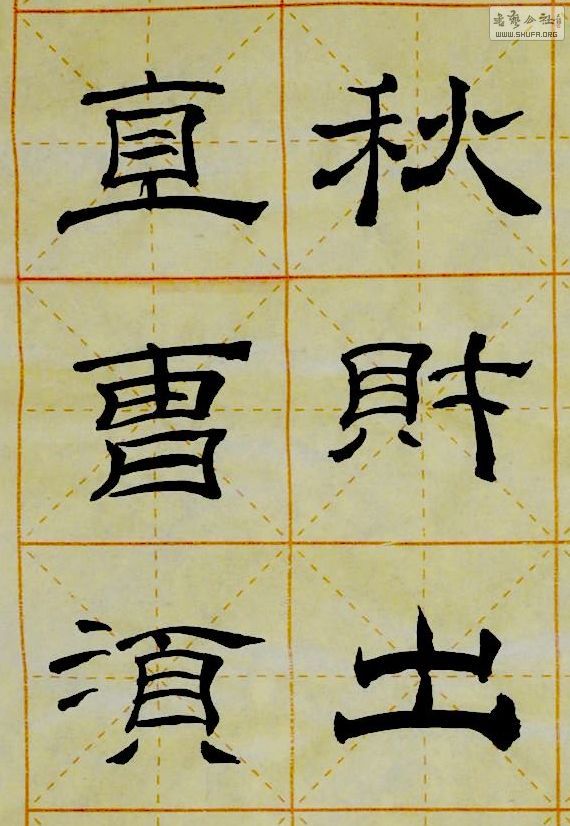 秋財出
直曹須
书艺公社
WWW.SHUFA.ORG